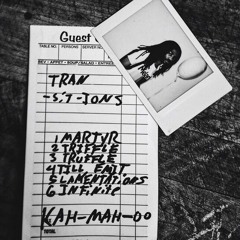 Guest
TABLE NO. PERSONS SERVER NO.
TRAN
-SiT-IONS
1 MARTYR
2 TRIFFLE
3 TRUFFLE
4 TILL EMIT
5 LAMENTATIONS
6 INFiNiTE
KAH-MAH-OO
TOTAL